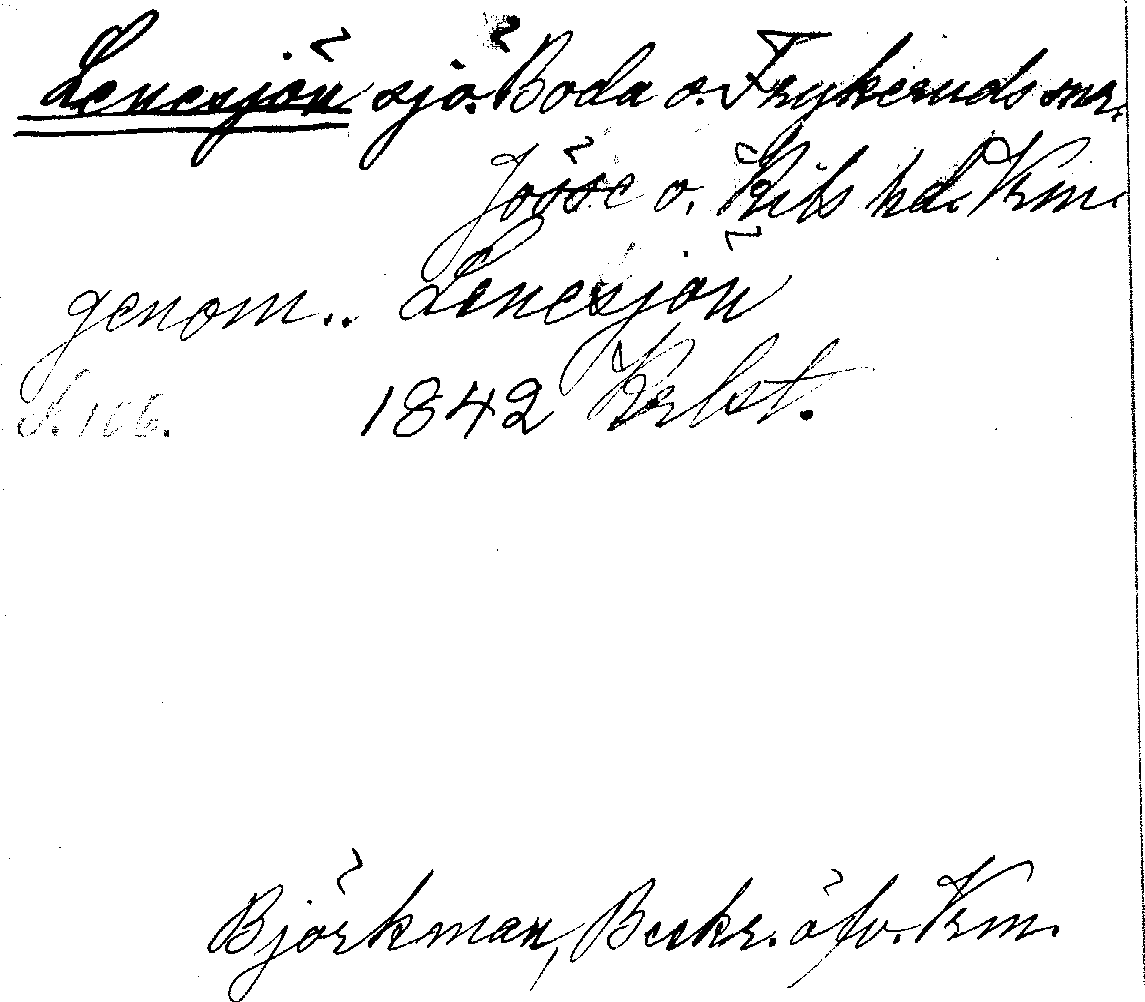 Lenesjön sjö. Boda o. Frykeruds snr.
Jösse o. Kils hd. Vrm.
genom.. Lenesjön
S. 106. 1842 Krlst.
Björkman, Beskr. öfv. Vrm.